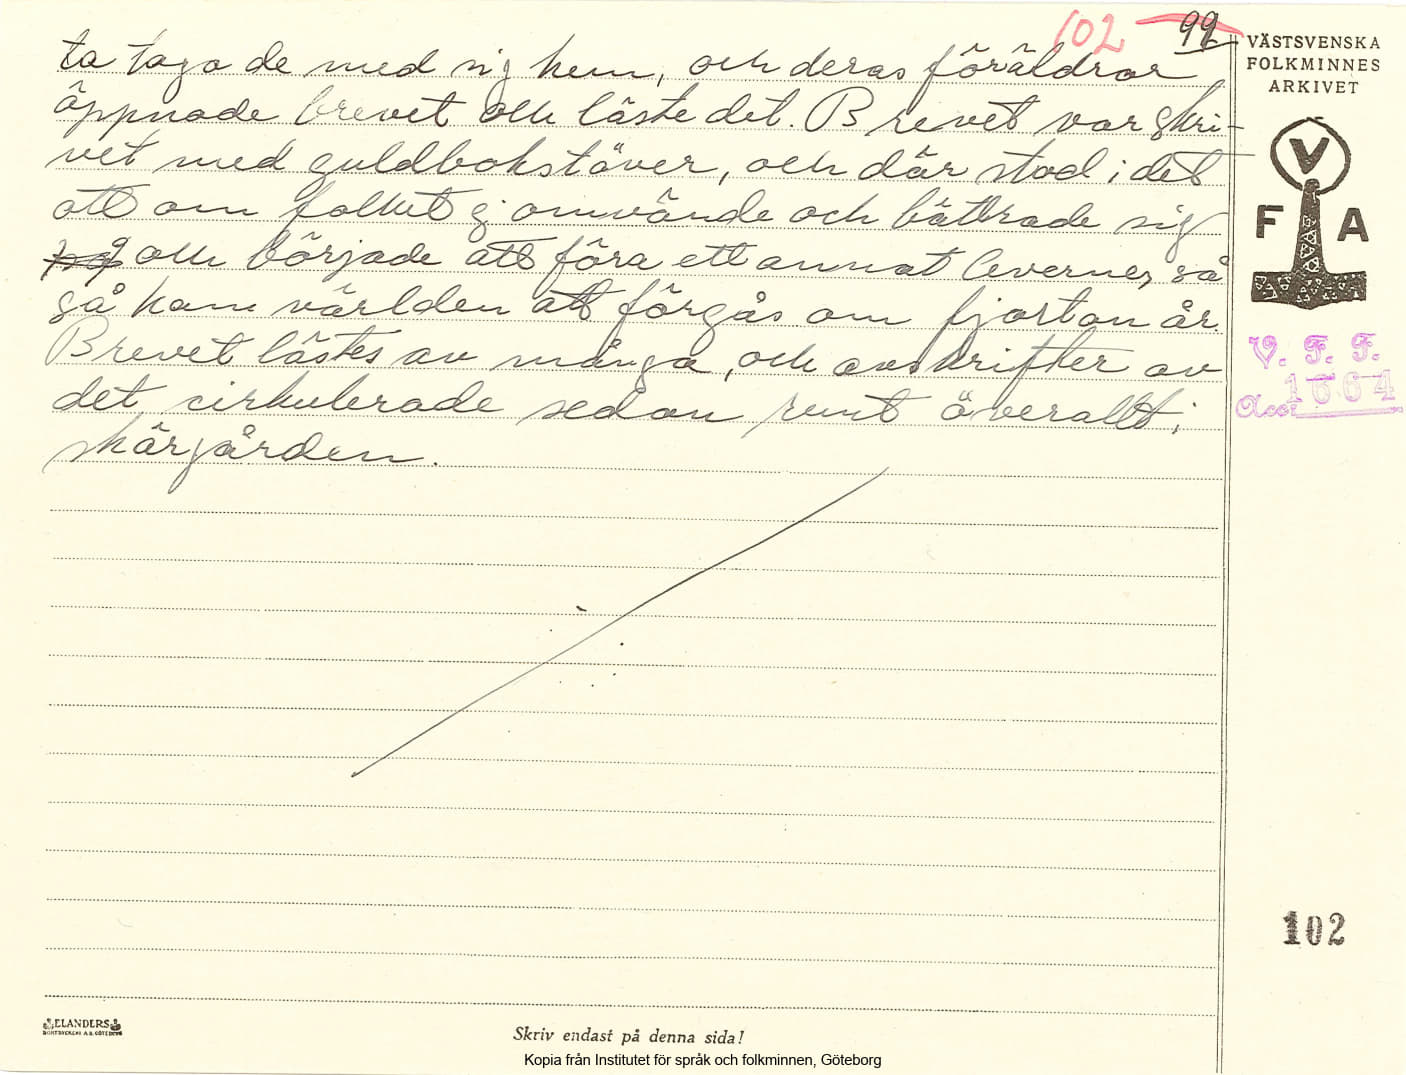 102 99
ta togo de med sig hem, och deras föräldrar
öppnade brevet och läste det. Brevet var skri-
vet med guldbokstäver, och där stod i det
att om folket ej omvände och bättrade sig
och började att föra ett annat leverne, så
så kom världen att förgås om fjorton år.
Brevet lästes av många, och avskrifter av
det cirkulerade sedan runt överallt i
skärgården.
VÄSTSVENSKA
FOLKMINNES
ARKIVET
V
F A
V. F. F.
Acc: 1664
102
ELANDERS
BOKTRYCKERI A.B. GÖTEBORG
Skriv endast på denna sida!
Kopia från Institutet för språk och folkminnen, Göteborg